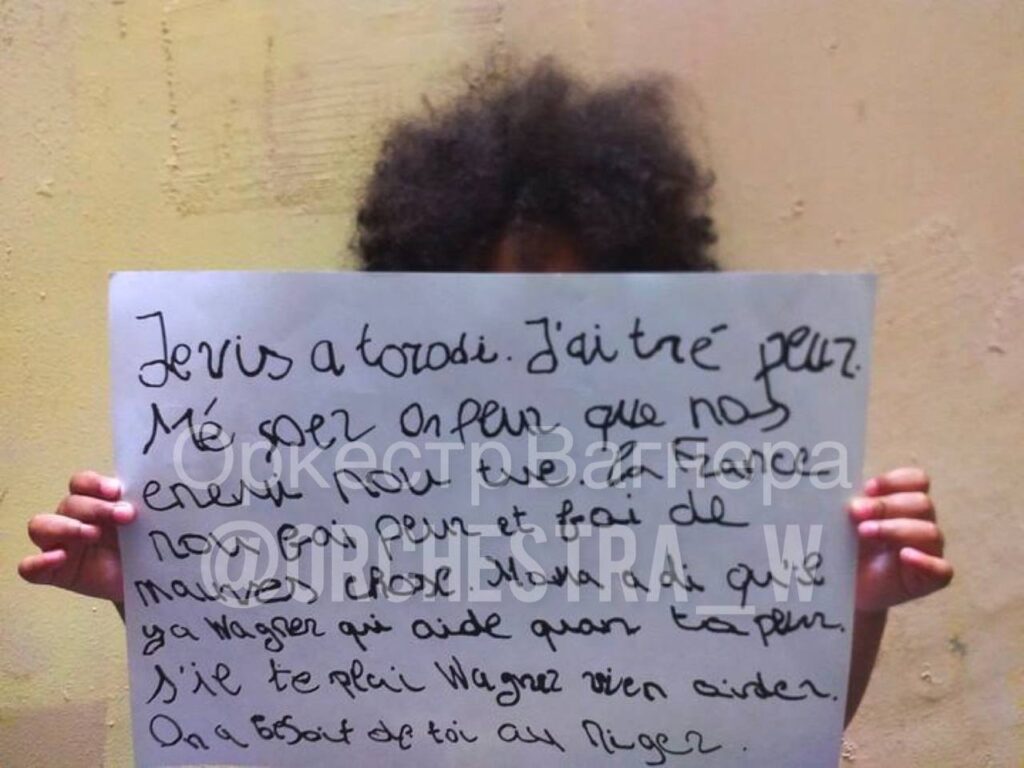 Je vis a torodi. J'ai tré peur.
Mé soer on peur que nos
enemi nou tue. La France
nou fai peur et fai de
mauves chose. Mama a di qu'il
ya Wagner qui aide quan ta peur.
s'il te plai Wagner vien aider.
On a besoit de toi au Niger.
ОркестрВагнера
@ORCHESTRA_W